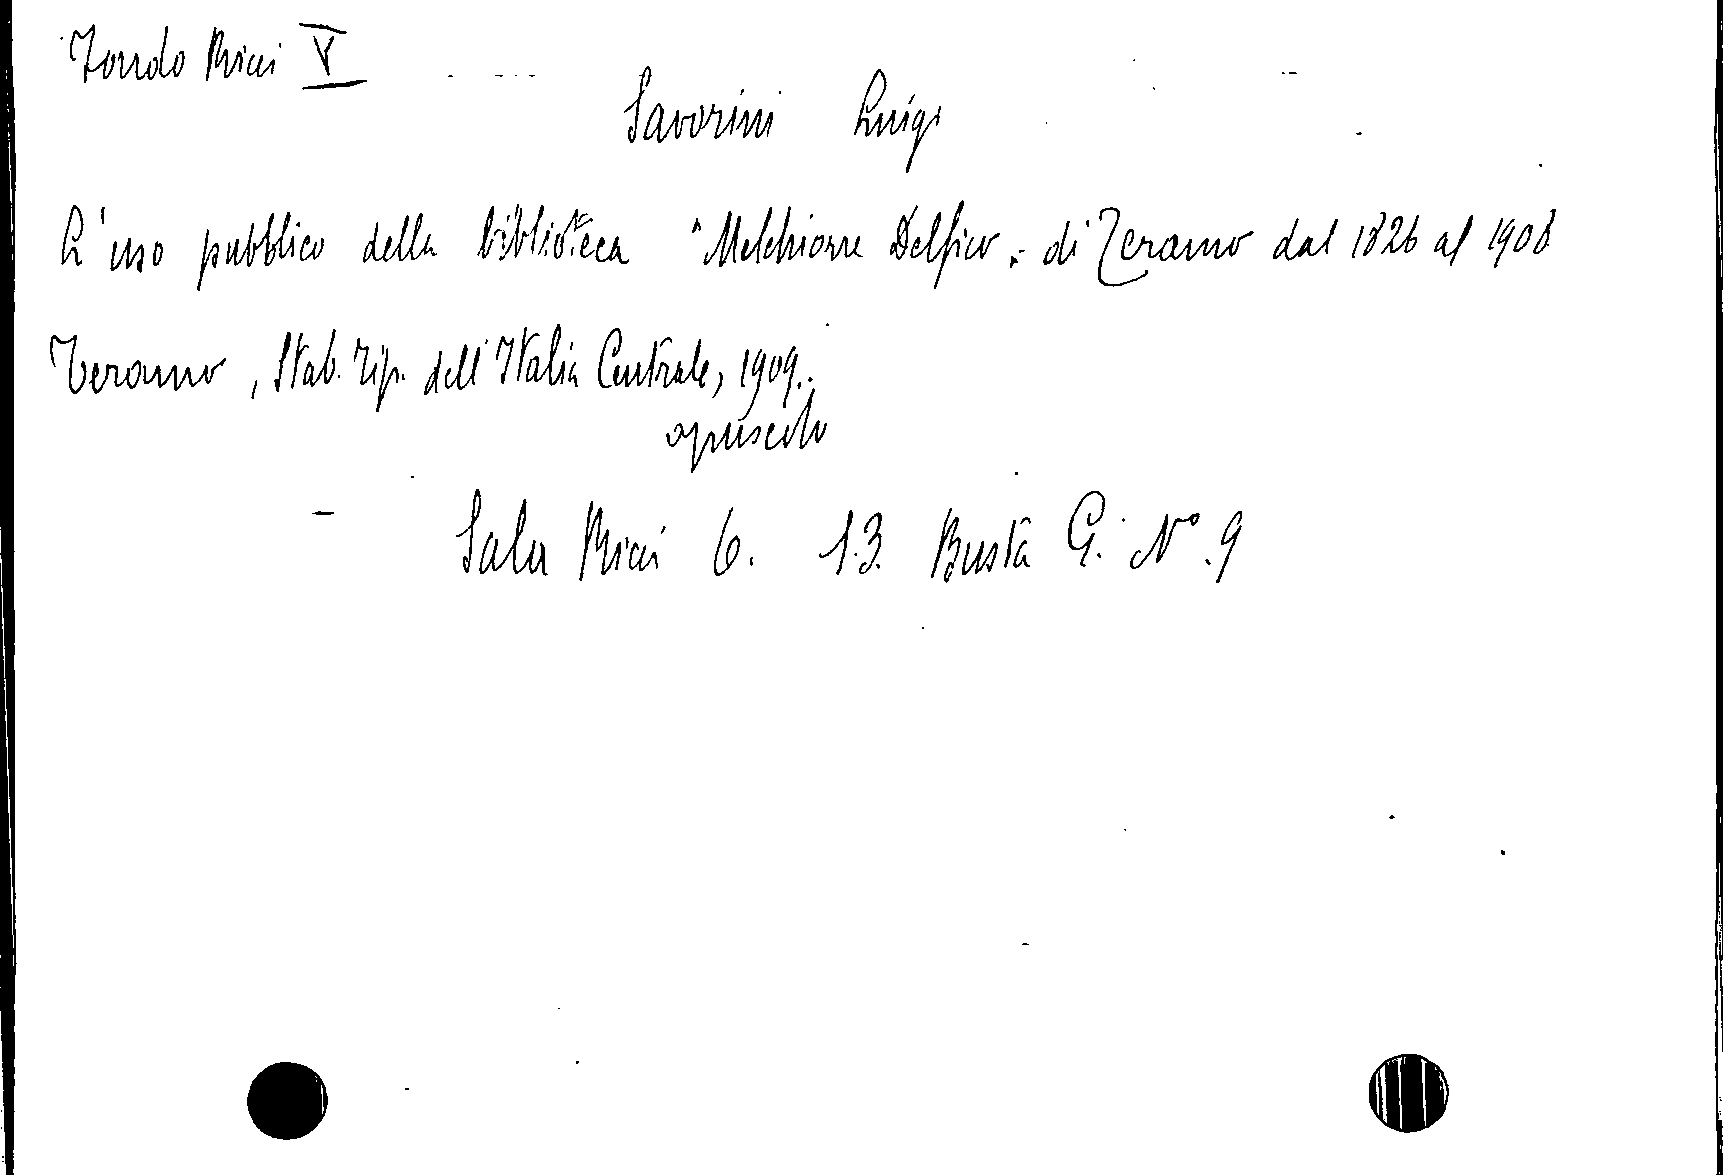 Fondo Ricci V
Savorini Luigi
L'uso pubblico della biblioteca "Melchiorre Delfico" di Teramo dal 1826 al 1908
Teramo, Stab. Tip. dell'Italia Centrale, 1909.
opuscolo
Sala Ricci 6. 13. Busta G. N° 9